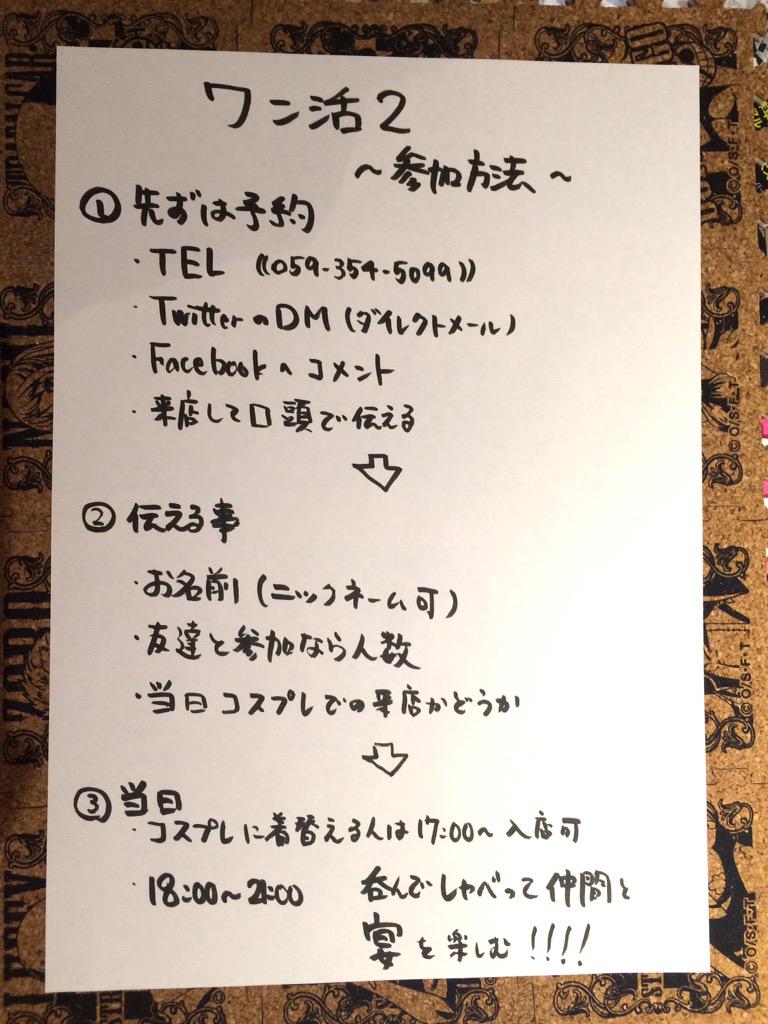 ワン活2
～参加方法～
① 先ずは予約
・TEL ((059-354-5099))
・TwitterのDM(ダイレクトメール)
・Facebookへコメント
・来店して口頭で伝える
② 伝える事
・お名前(ニックネーム可)
・友達と参加なら人数
・当日コスプレでの来店かどうか
③ 当日
・コスプレに着替える人は17:00～入店可
・18:00～21:00 呑んでしゃべって仲間と
宴を楽しむ!!!!
©O/S・F・T
©O/S・F・T
©O/S・F・T
©O/S・F・T